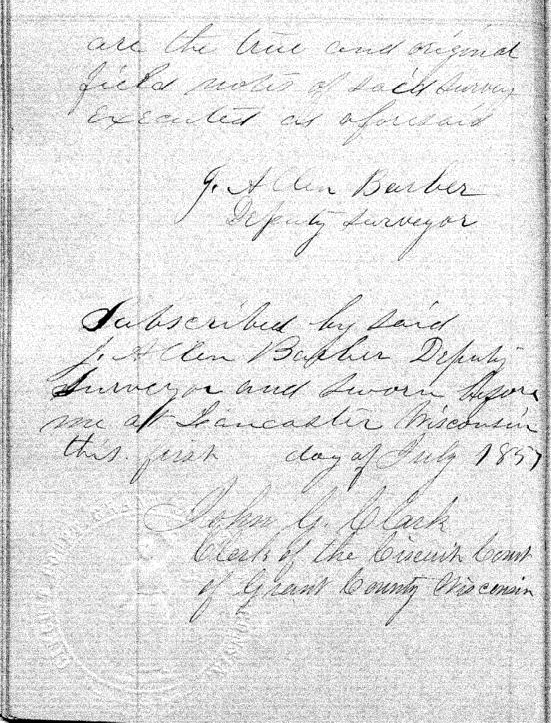 are the true and original
field notes of said survey
executed as aforesaid
J. Allen Barber
Deputy Surveyor
Subscribed by said
J. Allen Barber Deputy
Surveyor and sworn before
me at Lancaster Wisconsin
this first day of July 1857
John G. Clark
Clerk of the Circuit Court
of Grant County Wisconsin